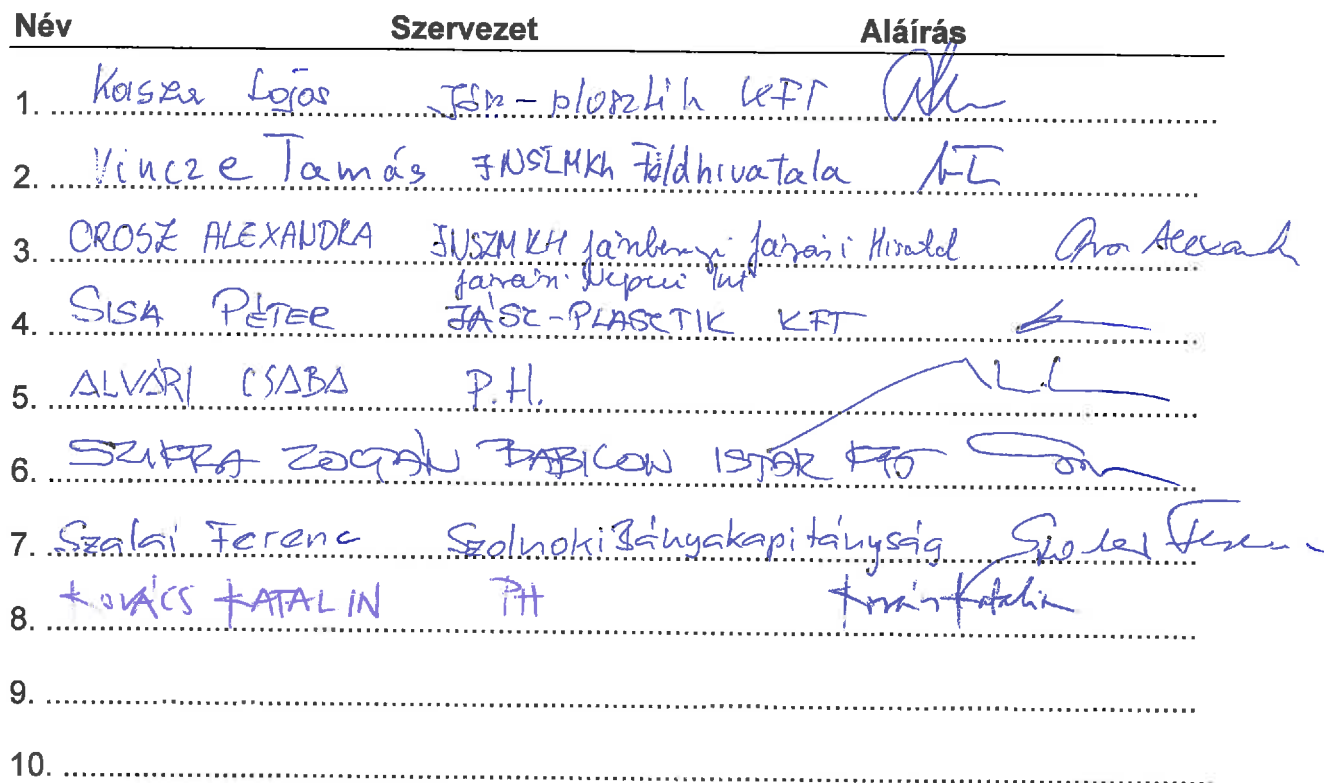 Név Szervezet Aláírás
1. Kasza Lajos Jász-plasztik KFT
2. Vincze Tamás JNSZMKh Földhivatala
3. OROSZ ALEXANDRA JNSZMKH Járási Hivatal
Járási Népeü Int
4. SISA PÉTER JÁSZ-PLASZTIK KFT
5. ALVÁRI CSABA P.H.
6. SZIKRA ZOLTÁN BABILON ISTÁR
7. Szalai Ferenc Szolnoki Bányakapitányság Szalai Ferenc
8. KOVÁCS KATALIN PH Kovács Katalin
9.
10.